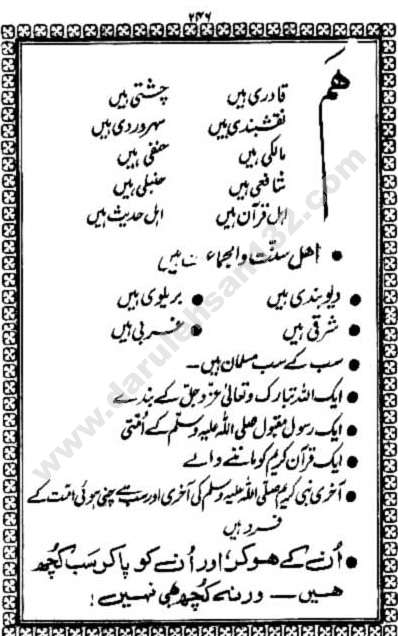 ۲۴۶
ھم
قادری ہیں چشتی ہیں
نقشبندی ہیں سہروردی ہیں
مالکی ہیں حنفی ہیں
شافعی ہیں حنبلی ہیں
اہل قرآن ہیں اہل حدیث ہیں
• اھل سنّت والجماعت ہیں
• دیوبندی ہیں • بریلوی ہیں
• شرقی ہیں • غربی ہیں
• سب کے سب مسلمان ہیں۔۔
• ایک اللہ تبارک وتعالیٰ عزوجل کے بندے
• ایک رسول مقبول صلی اللہ علیہ وسلّم کے اُمّتی
• ایک قرآن کریم کو ماننے والے
• آخری نبی کریم صلّی اللہ علیہ وسلم کی آخری اور سب سے چنی ہوئی امّت کے
فرد ہیں
• اُن کے ھوکر، اور اُن کو پاکر سَب کچھ
ھیں — ورنہ کچھ بھی نہیں!
www.darulehsan132.com